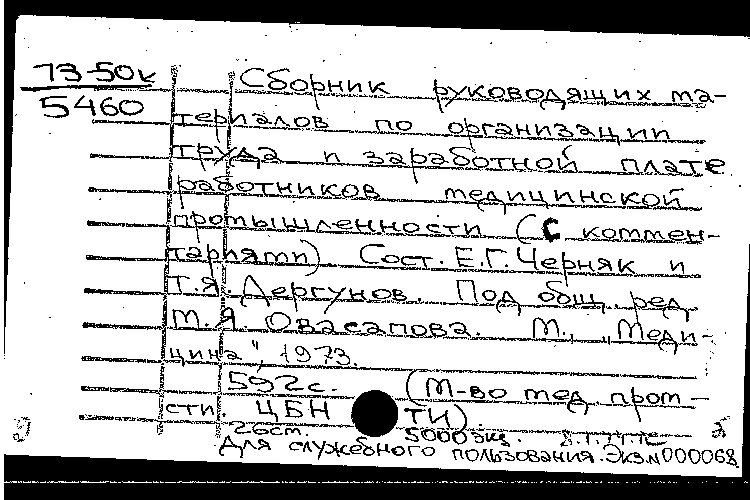 73-50к
5460
Сборник руководящих ма-
териалов по организации
труда и заработной плате
работников медицинской
промышленности (с коммен-
тариями). Сост. Е.Г. Черняк и
Т.Я. Дергунов. Под общ. ред.
М.Я. Овасапова. М., "Меди-
цина", 1973.
592с. (М-во мед. пром-
сти. ЦБН ТИ).
26см. 5000 экз.
Для служебного пользования. Экз.№000068